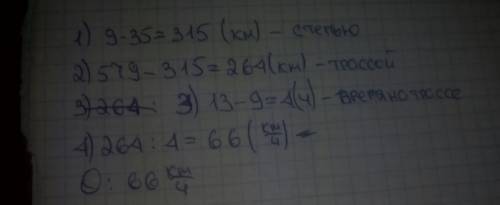 1) 9·35=315 (км) – степью
2) 579–315=264(км)–трассой
3) 264: 3) 13–9=4(ч) – время на трассе
4) 264:4=66(км/ч) –
О: 66 км/ч